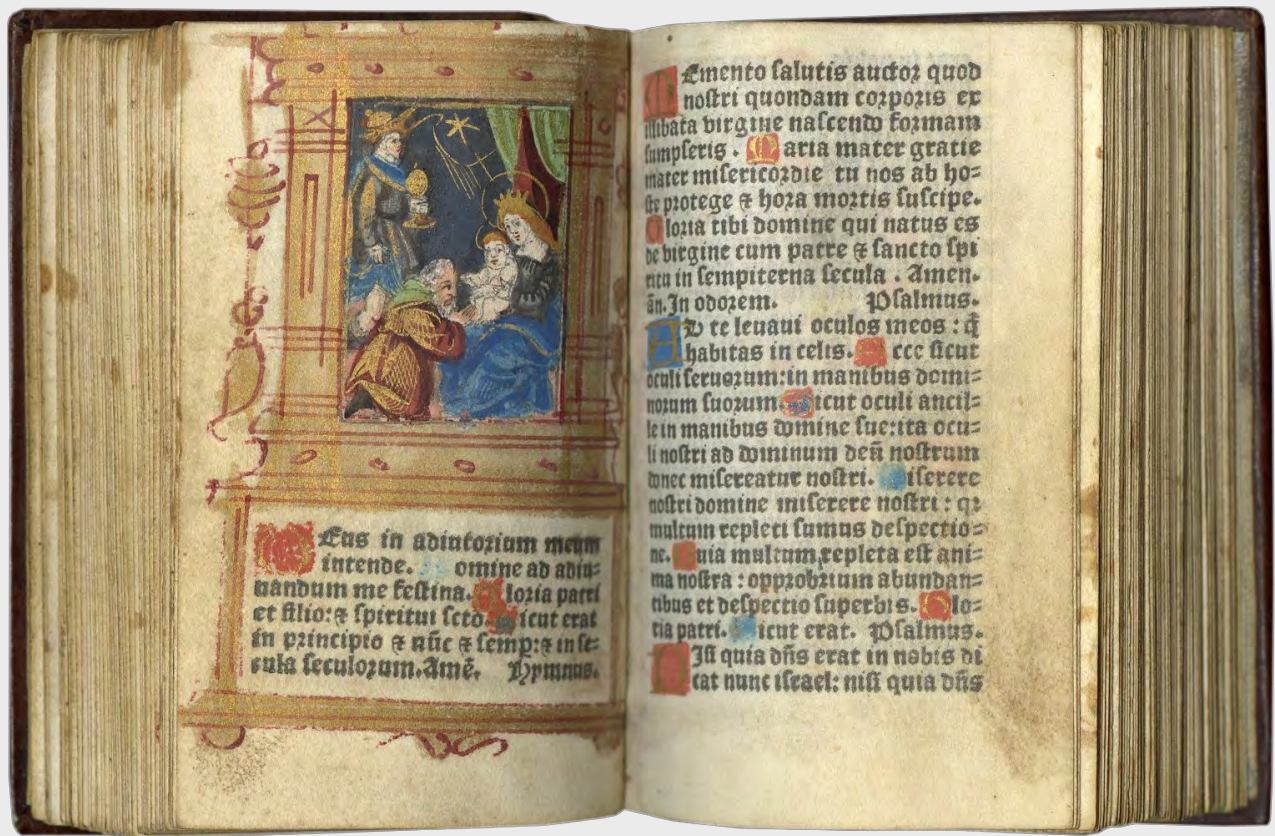 DEus in adiutorium meum
intende. Domine ad adiu-
uandum me festina. Gloria patri
et filio: ⁊ spiritui scto. Sicut erat
in principio ⁊ nūc ⁊ semp: ⁊ in se-
cula seculorum. Amē. Hymnus.
MEmento salutis auctor quod
nostri quondam corporis ex
illibata virgine nascendo formam
sumpseris. Maria mater gratie
mater misericordie tu nos ab ho=
ste protege ⁊ hora mortis suscipe.
Gloria tibi domine qui natus es
de virgine cum patre ⁊ sancto spi
ritu in sempiterna secula. Amen.
ān. In odorem. Psalmus.
AD te leuaui oculos meos: q̄
habitas in celis. Ecce sicut
oculi seruorum: in manibus domi=
norum suorum. Sicut oculi ancil=
le in manibus domine sue: ita ocu=
li nostri ad dominum deū nostrum
donec misereatur nostri. Miserere
nostri domine miserere nostri: qꝛ
multum repleti sumus despectio=
ne. Quia multum repleta est ani=
ma nostra: opprobrium abundan=
tibus et despectio superbis. Glo=
ria patri. Sicut erat. Psalmus.
NIsi quia dn̄s erat in nobis di
cat nunc israel: nisi quia dn̄s